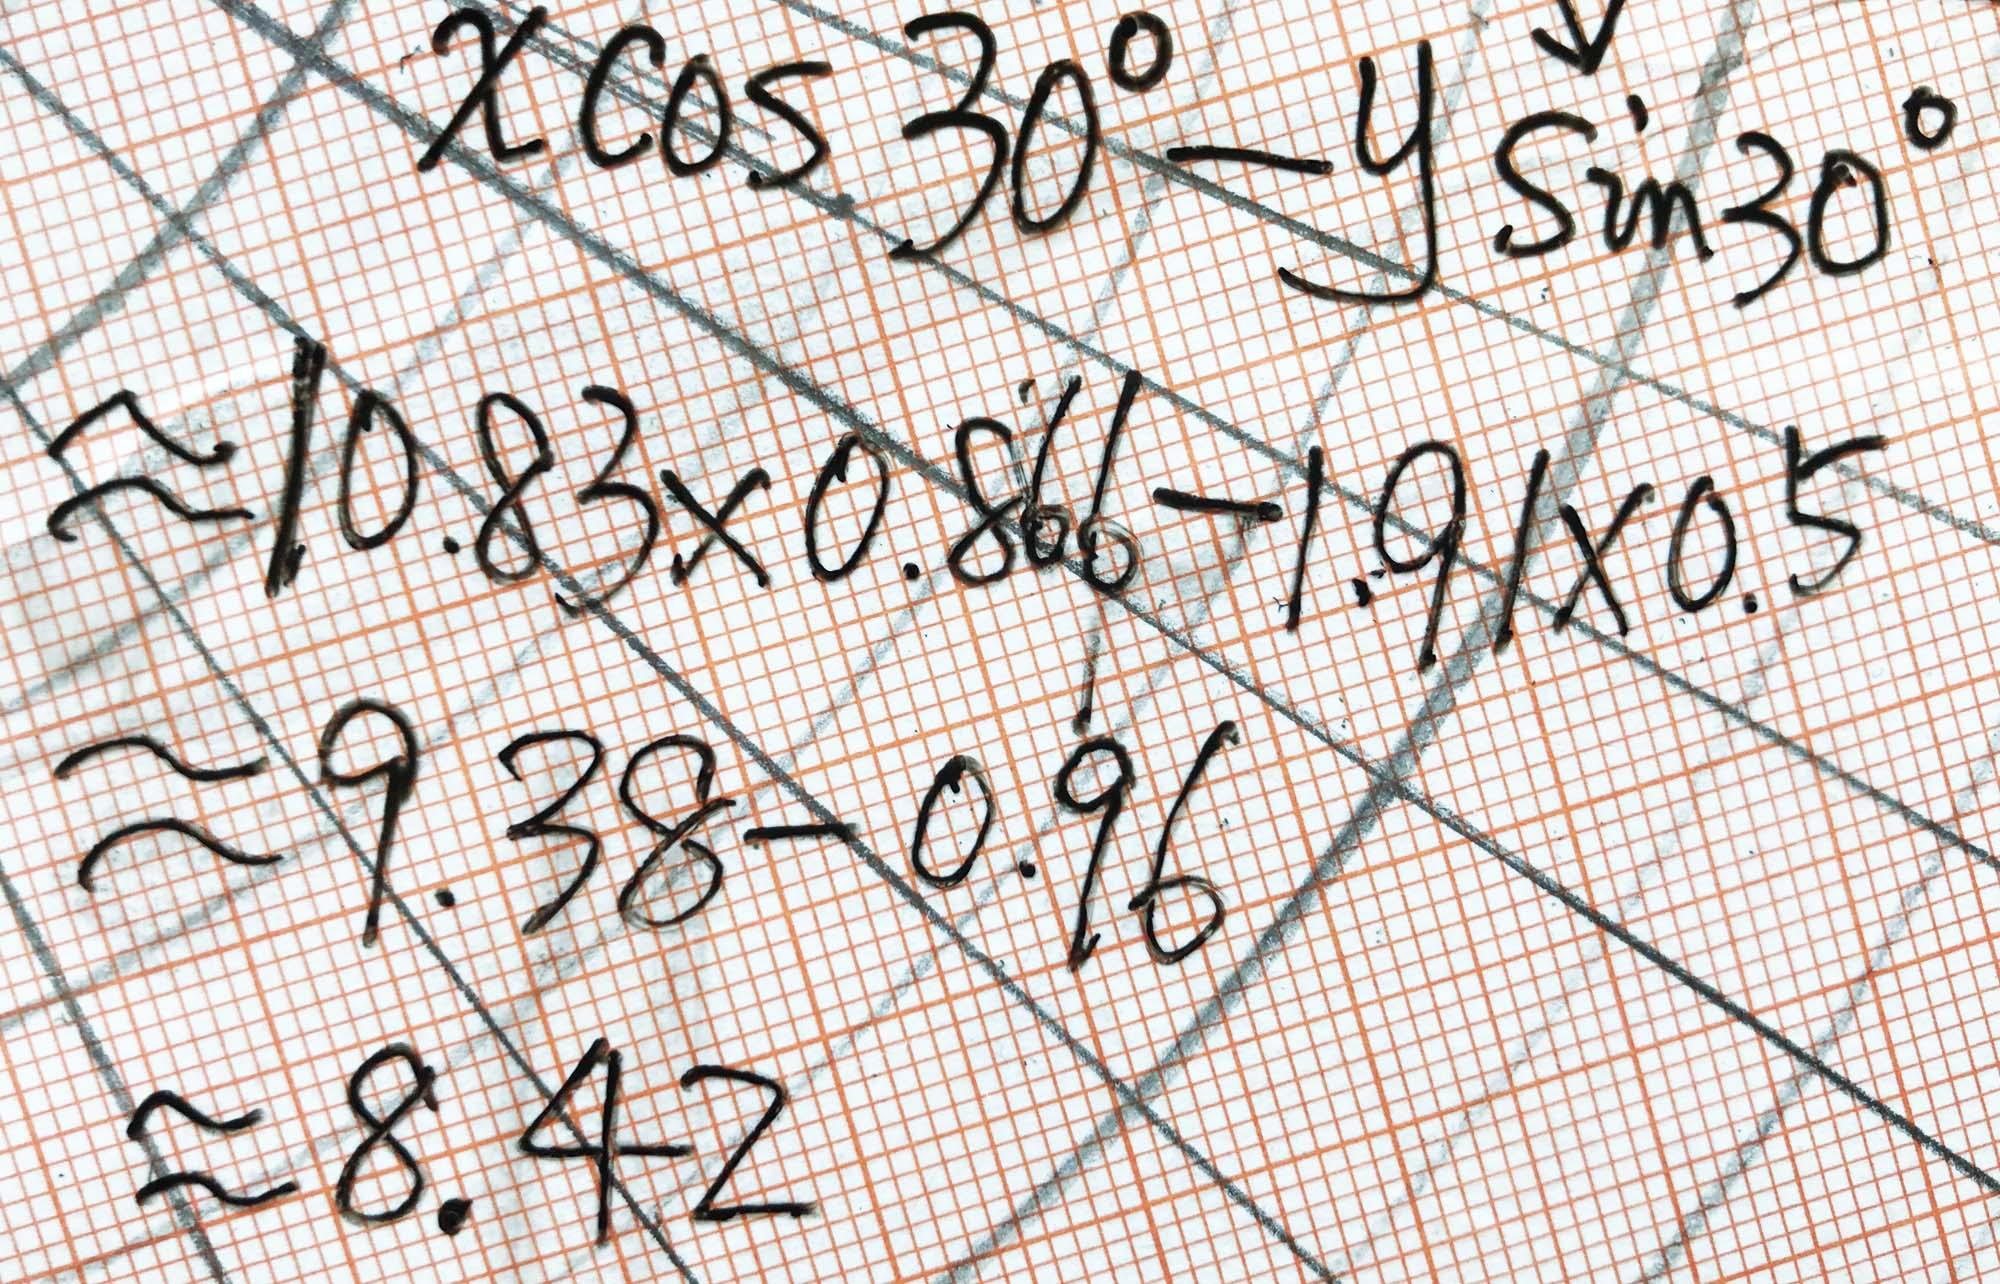 x cos 30° - y sin 30°
≈ 10.83 × 0.866 - 1.91 × 0.5
≈ 9.38 - 0.96
≈ 8.42